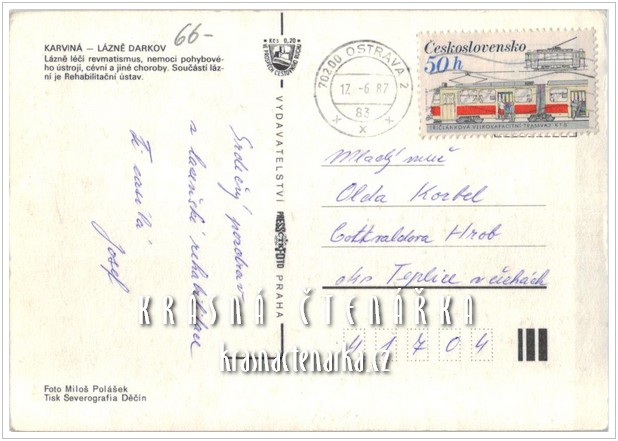 KARVINÁ — LÁZNĚ DARKOV
Lázně léčí revmatismus, nemoci pohybové-
ho ústrojí, cévní a jiné choroby. Součástí láz-
ní je Rehabilitační ústav.
66-
Kčs 0,20
70200 OSTRAVA 2
17. -6. 87
83
x x x
Československo
50h
TŘÍČLÁNKOVÁ VELKOKAPACITNÍ TRAMVAJ KT8
VYDAVATELSTVÍ PRESSFOTO PRAHA
Srdečný pozdrav
z lázeňské rehabilitace
Ti zasílá
Josef
Mladý muž
Olda Korbel
Gottwaldova Hrob
okr Teplice v čechách
41704
KRÁSNÁ ČTENÁŘKA
krasnactenarka.cz
Foto Miloš Polášek
Tisk Severografia Děčín